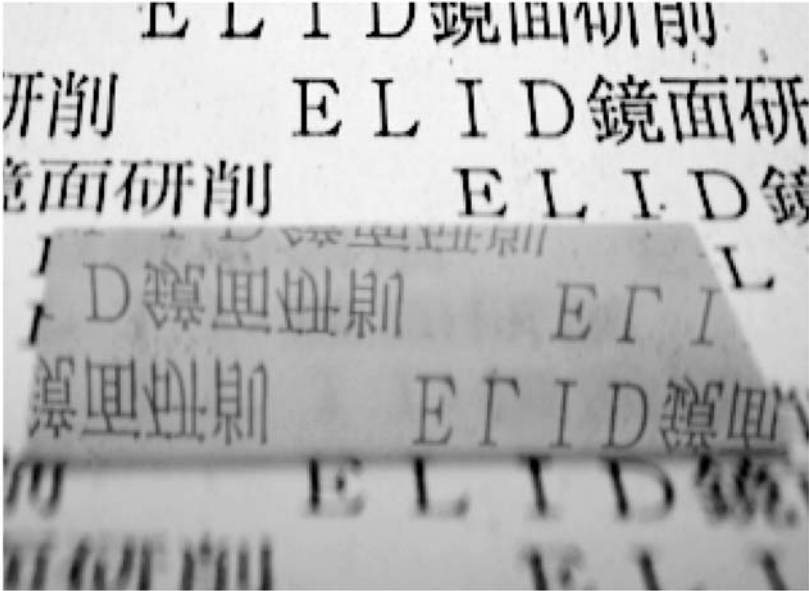 E L I D鏡面研削
研削 E L I D鏡面研
鏡面研削 E L I D鏡
L
I D鏡面研削
D鏡面研削 E L I
鏡面研削 E L I D鏡面
削 E L I D鏡
研削 E L I